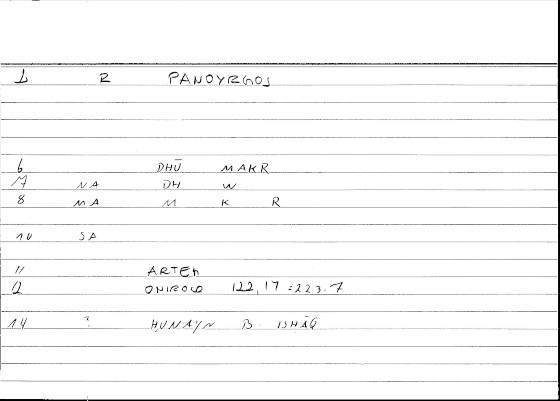 1 R PANOYRGOS
6 DHŪ MAKR
7 NA DH W
8 MA M K R
10 SA
11 ARTEM
12 ONIROCR 122,17 = 223.7
14 ? ḤUNAYN B ISḤĀQ